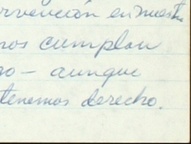 rvención en nuestr
ros cumplan
go — aunque
tenemos derecho.